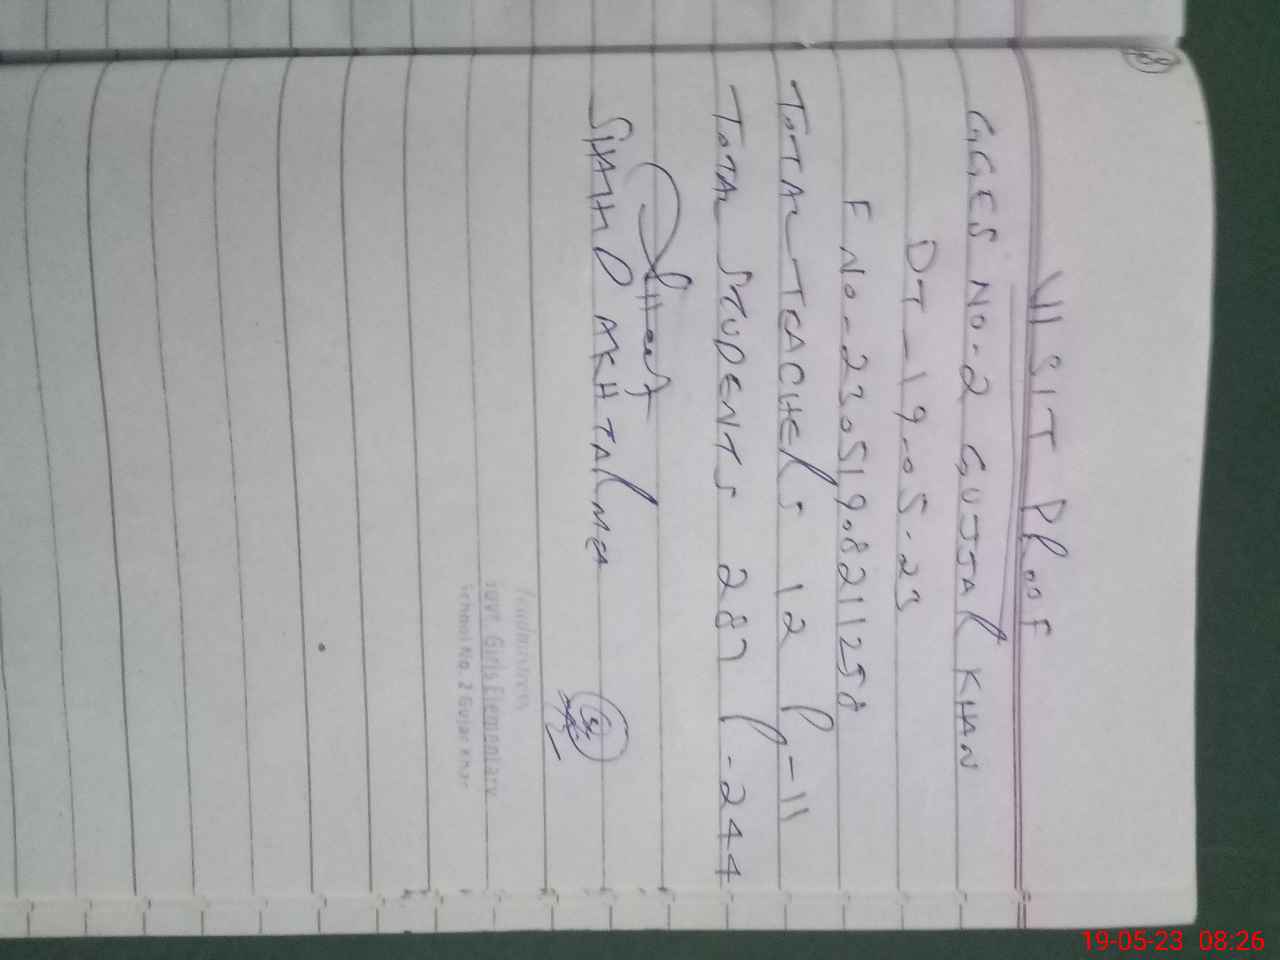 VISIT PROOF
GGES NO-2 GUJJAR KHAN
DT-19-05-23
F NO-23051908211258
TOTAL TEACHERS 12 P-11
TOTAL STUDENTS 287 P-244
SHAHID AKHTAR MEA
Headmistress
Govt. Girls Elementary
School No. 2 Gujar Khan
19-05-23 08:26